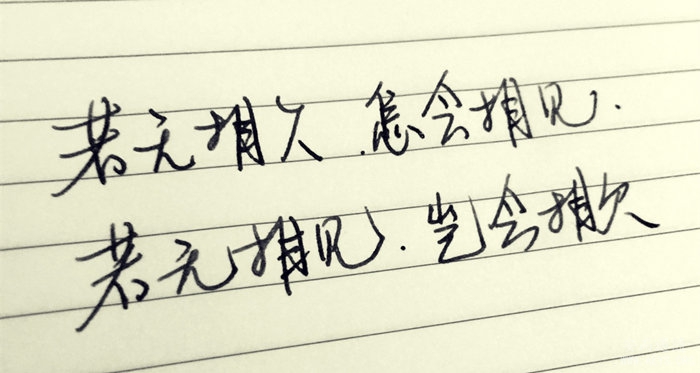 若无相欠.怎会相见.
若无相见.岂会相欠